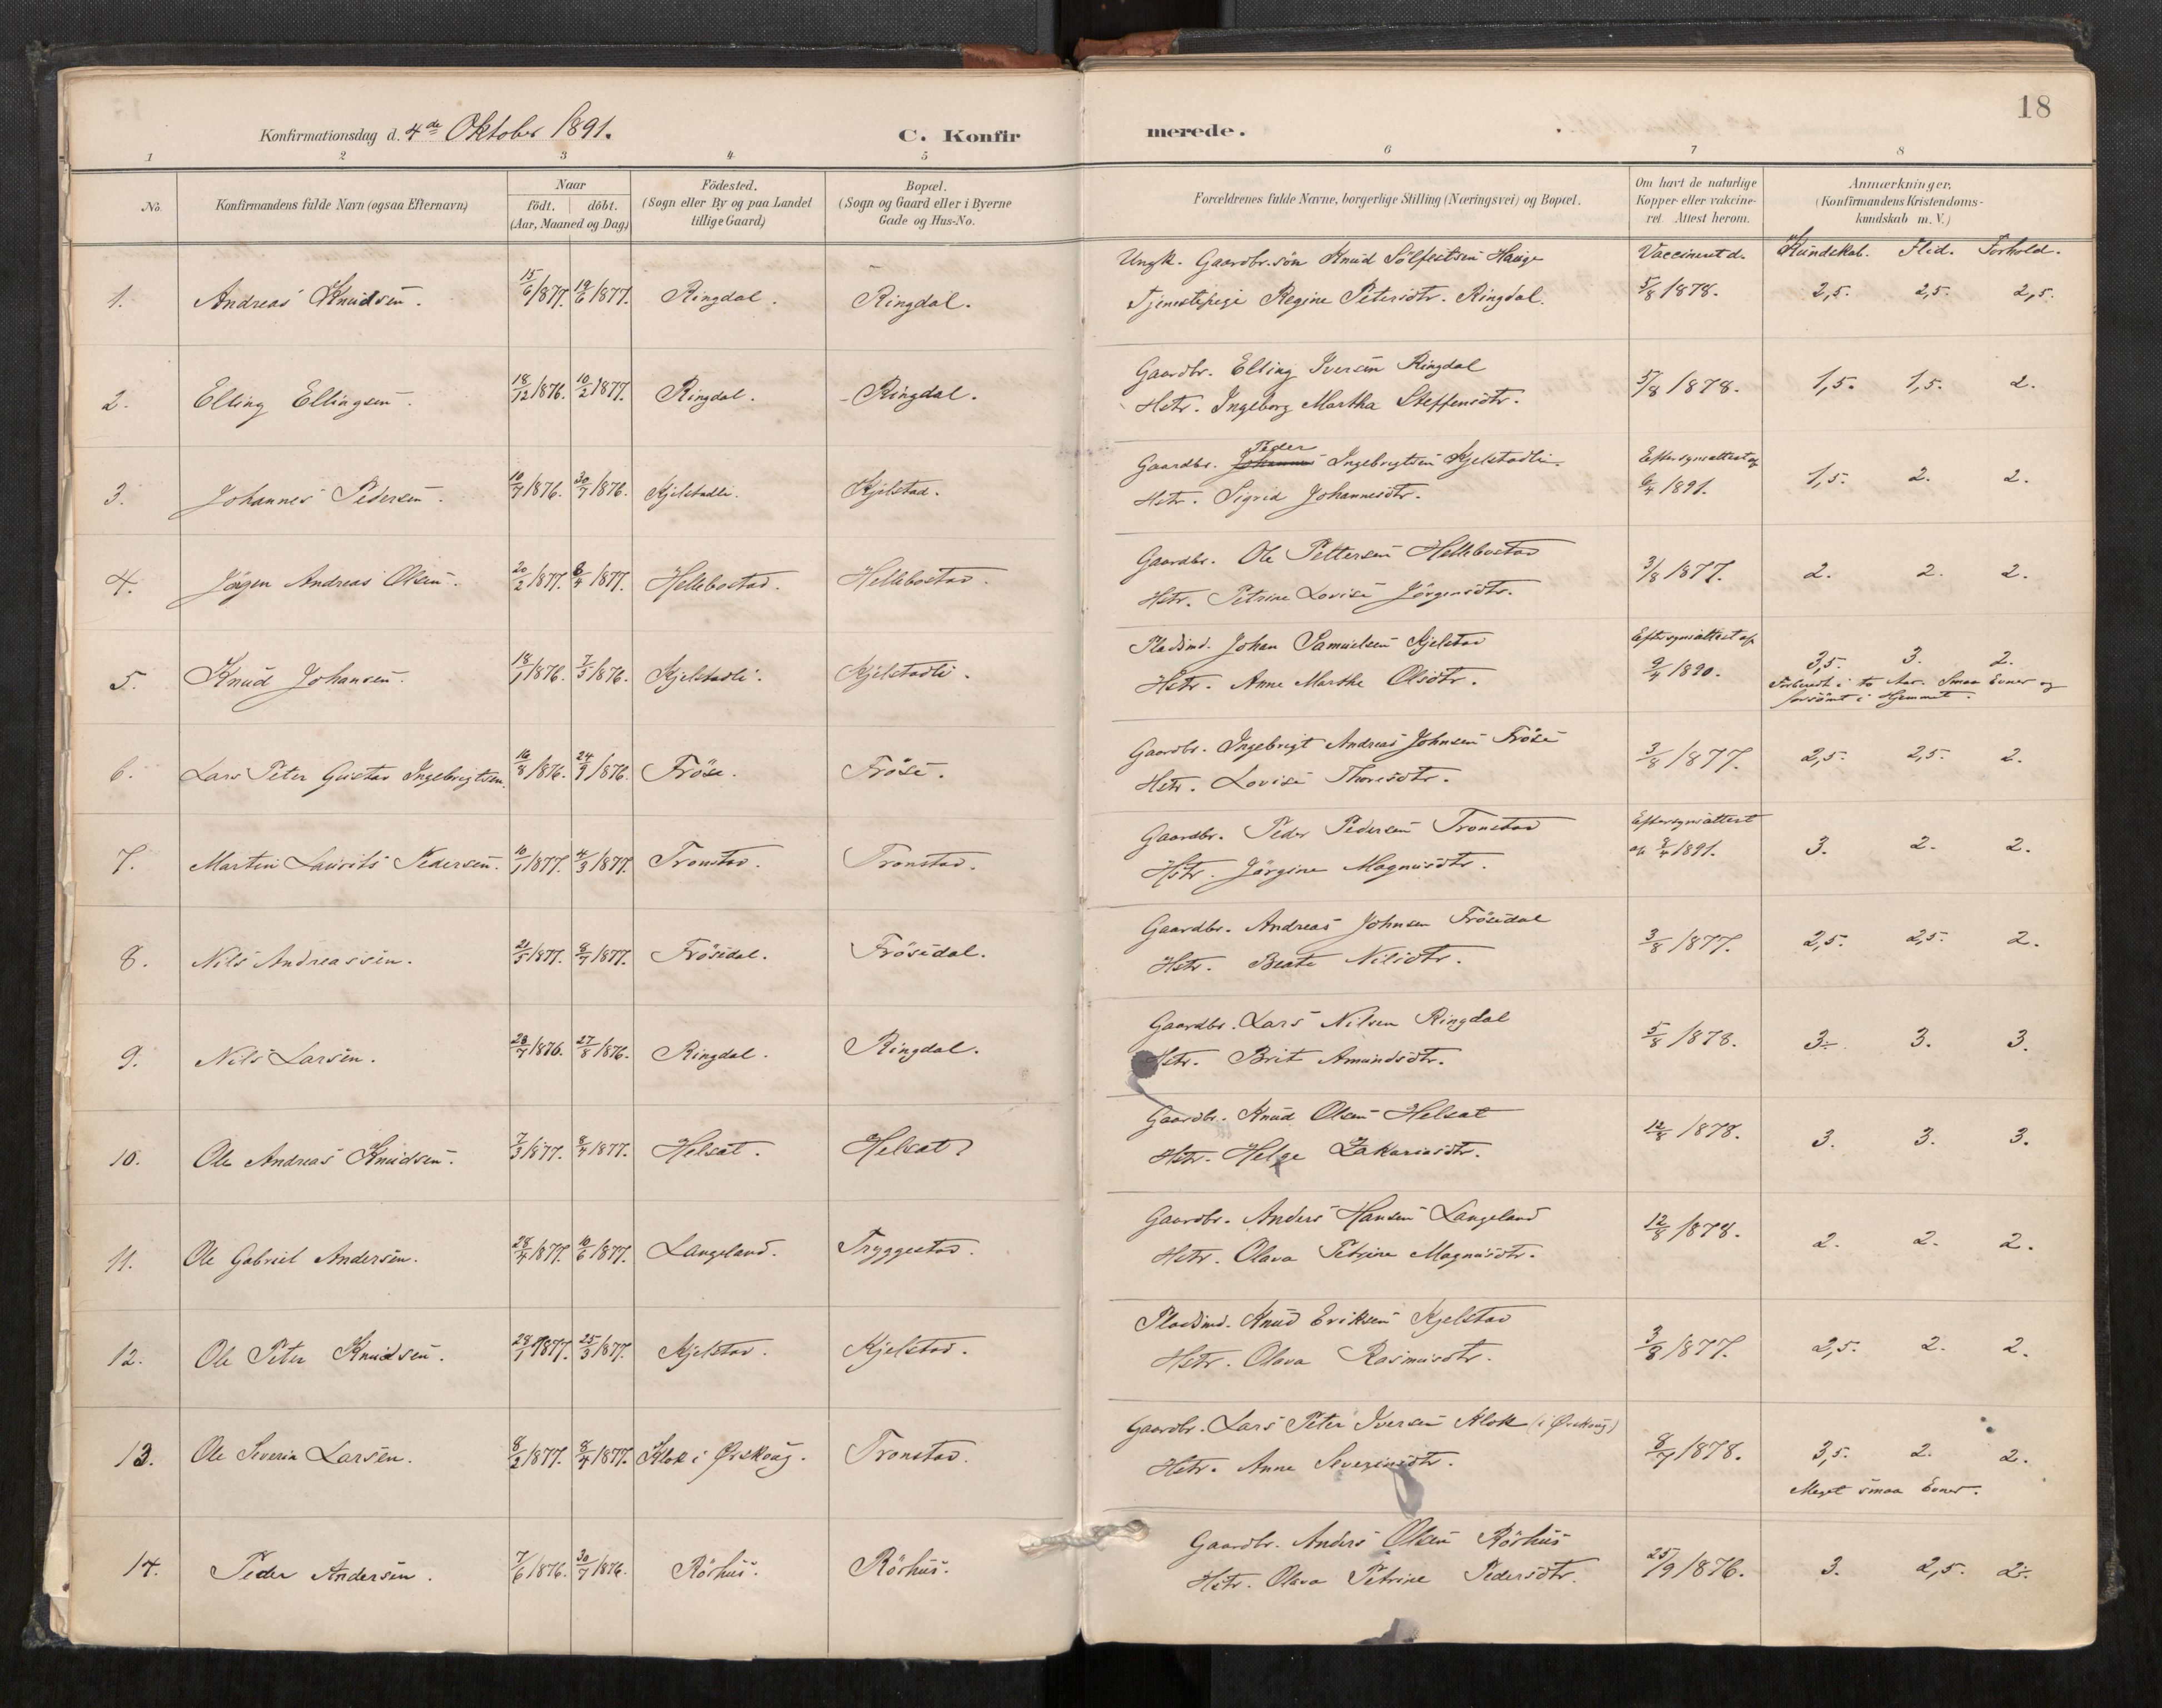 18
Konfirmationsdag d. 4de Oktober 1891.
C. Konfirmerede.
1 2 3 4 5 6 7 8
No.
Konfirmandens fulde Navn (ogsaa Efternavn)
Naar
födt. döbt.
(Aar, Maaned og Dag)
Födested.
(Sogn eller By og paa Landet
tillige Gaard)
Bopæl.
(Sogn og Gaard eller i Byerne
Gade og Hus-No.
Forældrenes fulde Navne, borgerlige Stilling (Næringsvei) og Bopæl.
Om havt de naturlige
Kopper eller vakcine-
ret. Attest herom.
Anmærkninger.
(Konfirmandens Kristendoms-
kundskab m. V.)
Ungk. Gaardbr.søn Knud Sölfestsen Hauge Vaccineret d. Kundskab. Flid. Forhold.
1. Andreas Knudsen. 15/6 1877. 19/6 1877. Ringdal. Ringdal. Tjenestepige Regine Petersdtr. Ringdal. 5/8 1878. 2,5. 2,5. 2,5.
Gaardbr. Elling Iversen Ringdal
2. Elling Ellingsen. 18/12 1876. 10/2 1877. Ringdal. Ringdal. Hstr. Ingeborg Martha Steffensdtr. 5/8 1878. 1,5. 1,5. 2.
Gaardbr. Johannes Peder Ingebrigtsen Kjelstadli. Eftersynsattest af
3. Johannes Pedersen. 10/7 1876. 30/7 1876. Kjelstadli. Kjelstad. Hstr. Sigrid Johannesdtr. 6/4 1891. 1,5. 2. 2.
Gaardbr. Ole Pettersen Hellebostad
4. Jörgen Andreas Olsen. 20/2 1877. 8/4 1877. Hellebostad. Hellebostad. Hstr. Petrine Lovise Jörgensdtr. 3/8 1877. 2. 2. 2.
Pladsmd. Johan Samuelsen Kjelstad Eftersynsattest af
5. Knud Johansen. 18/1 1876. 7/5 1876. Kjelstadli. Kjelstadli. Hstr. Anne Marthe Olsdtr. 9/4 1890. 3,5. 3. 2.
Forberedt i to Aar. Smaa Evner og
forsömt i Hjemmet.
Gaardbr. Ingebrigt Andreas Johnsen Fröse
6. Lars Peter Gustav Ingebrigtsen. 16/8 1876. 24/9 1876. Fröse. Fröse. Hstr. Lovise Thoresdtr. 3/8 1877. 2,5. 2,5. 2.
Gaardbr. Peder Pedersen Tronstad Eftersynsattest
7. Martin Laurits Pedersen. 10/1 1877. 4/3 1877. Tronstad. Tronstad. Hstr. Jörgine Magnusdtr. af 9/4 1891. 3. 2. 2.
Gaardbr. Andreas Johnsen Frösedal
8. Nils Andreassen. 21/5 1877. 8/7 1877. Frösedal. Frösedal. Hstr. Beate Nilsdtr. 3/8 1877. 2,5. 2,5. 2.
Gaardbr. Lars Nilsen Ringdal
9. Nils Larsen. 28/7 1876. 27/8 1876. Ringdal. Ringdal. Hstr. Brit Amundsdtr. 5/8 1878. 3÷. 3. 3.
Gaardbr. Knud Olsen Helsat
10. Ole Andreas Knudsen. 7/3 1877. 8/4 1877. Helsat. Helsat. Hstr. Helge Zakariasdtr. 12/8 1878. 3. 3. 3.
Gaardbr. Anders Hansen Langeland
11. Ole Gabriel Andersen. 28/4 1877. 10/6 1877. Langeland. Tryggestad. Hstr. Olava Petrine Magnusdtr. 12/8 1878. 2. 2. 2.
Pladsmd. Knud Eriksen Kjelstad
12. Ole Peter Knudsen. 28/1 1877. 25/3 1877. Kjelstad. Kjelstad. Hstr. Olava Rasmusdtr. 3/8 1877. 2,5. 2. 2.
Gaardbr. Lars Peter Iversen Klok (i Ørskoug)
13. Ole Severin Larsen. 8/2 1877. 8/4 1877. Klok i Ørskoug. Tronstad. Hstr. Anne Severinsdtr. 8/7 1878. 3,5. 2. 2.
Meget smaa Evner.
Gaardbr. Anders Olsen Rörhus
14. Peder Andersen. 7/6 1876. 30/7 1876. Rörhus. Rörhus. Hstr. Olava Petrine Pedersdtr. 25/9 1876. 3. 2,5. 2÷.